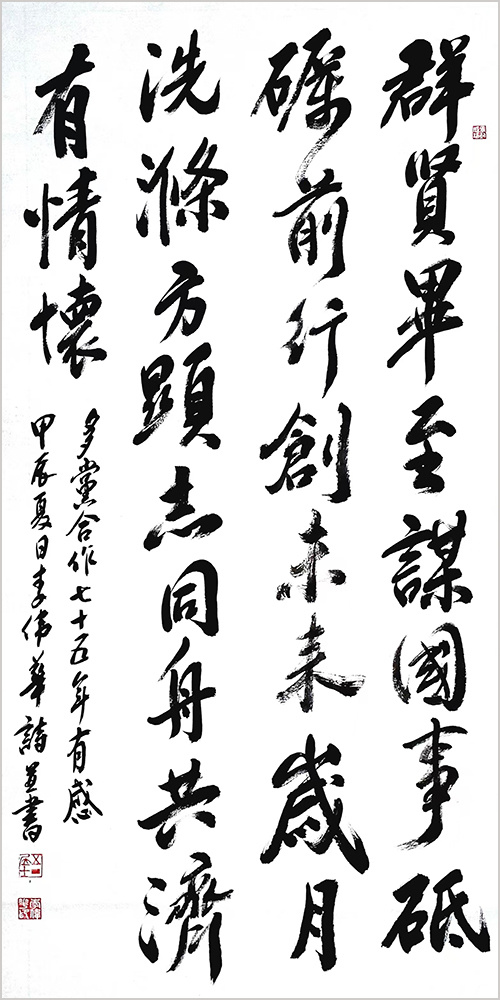 群賢畢至謀國事砥
礪前行創未来歲月
洗滌方顯志同舟共濟
有情懷
多黨合作七十五年有感
甲辰夏日李伟華詩並書